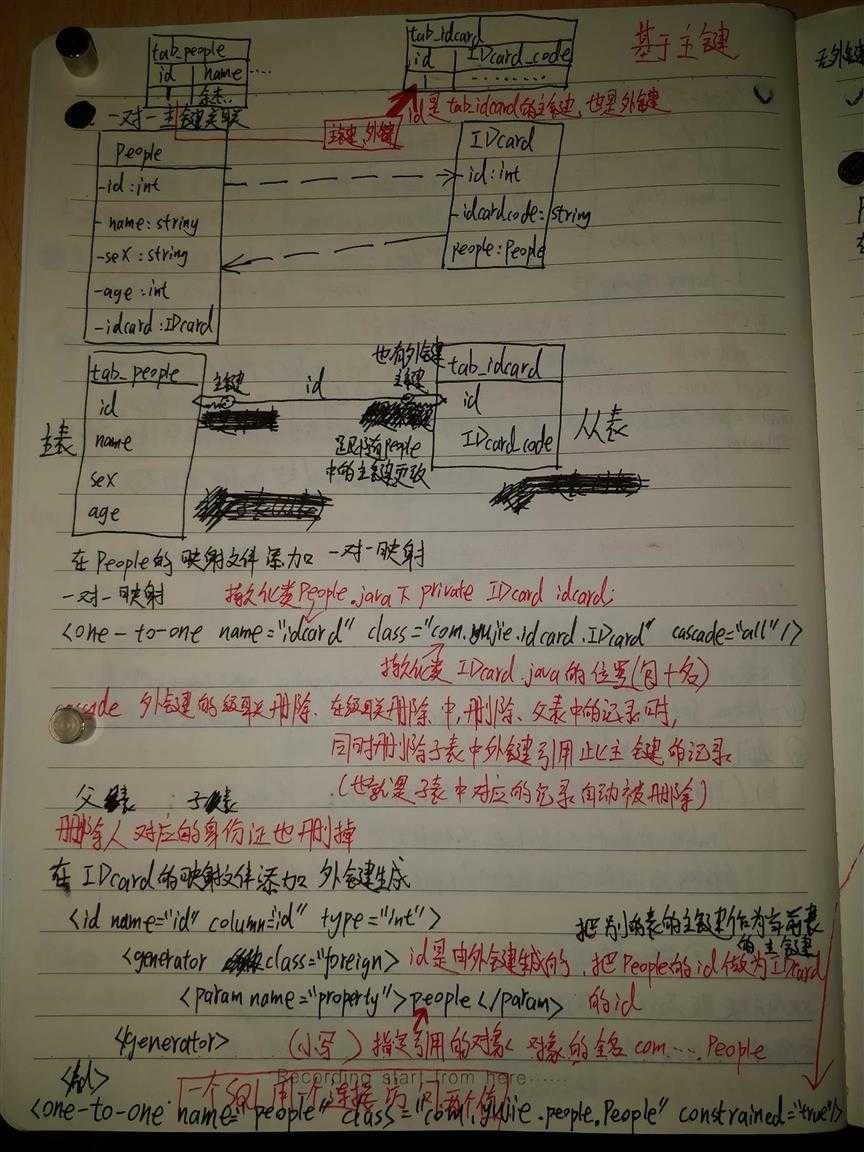 tab_people
id name ····
1 余杰..
tab_idcard
id IDcard_code
1 ········
基于主键
无外键
一对一主键关联
主键、外键
id是tab_idcard的主键,也是外键
People
-id:int
-name:string
-sex:string
-age:int
-idcard:IDcard
IDcard
-id:int
-idcardcode:string
people:People
tab_people
id
name
sex
age
主表
主键
id
也有外键
主键
中的主键更改
tab_idcard
id
IDcard_code
从表
在People的映射文件添加 一对一映射
一对一映射 持久化类People.java下 private IDcard idcard;
<one-to-one name="idcard" class="com.yujie.idcard.IDcard" cascade="all"/>
持久化类 IDcard.java的位置(包+名)
cascade 外键的级联删除、在级联删除中,删除、父表中的记录时,
同时删除子表中外键引用此主键的记录
(也就是子表中对应的记录自动被删除)
父表 : 子表
删除人对应的身份证也删掉
在IDcard的映射文件添加 外键生成
<id name="id" column="id" type="int">
把别的表的主键作为当前表
的主键
<generator class="foreign> id是由外键生成的,把People的id做为IDcard
的id
<param name="property">people</param>
</generator> (小写) 指定引用的对象 对象的全名com····People
</id>
Recording start from here......
一个SQL用一个连接
<one-to-one name="people" class="com.yujie.people.People" constrained="true"/>